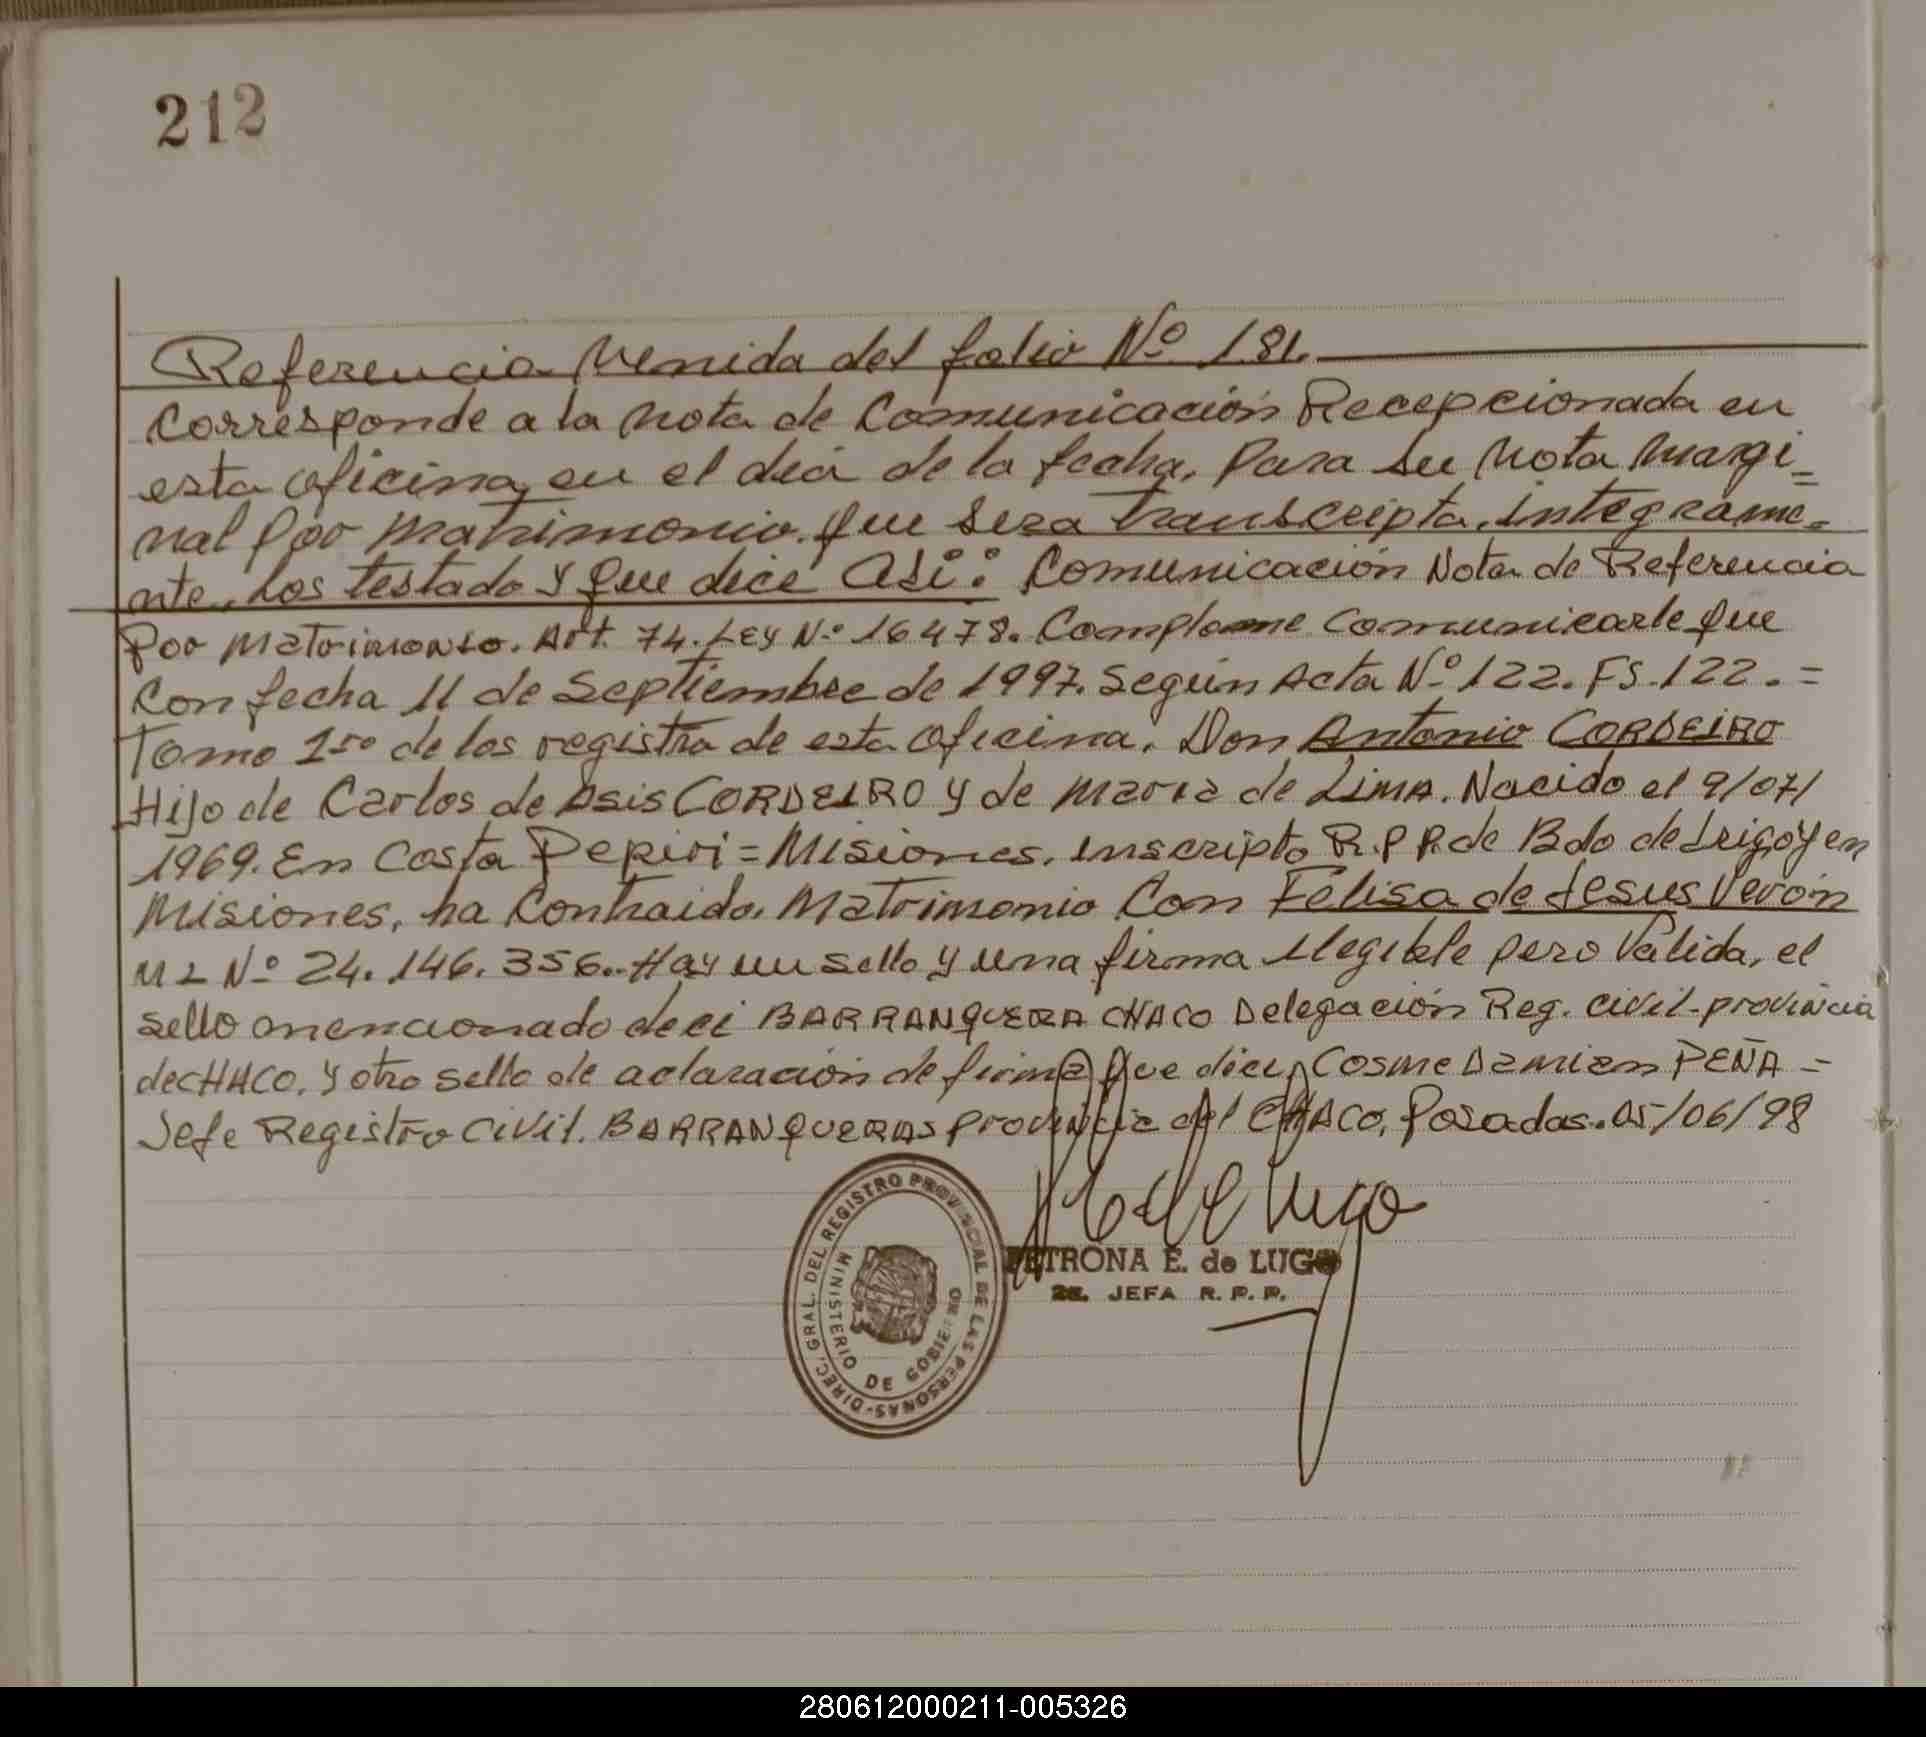 212
Referencia Venida del folio Nº 181.
Corresponde a la Nota de Comunicación Recepcionada en
esta oficina en el día de la fecha, Para su Nota Margi=
nal por Matrimonio. que sera transcripta, integrame=
nte, los testado y que dice Asi: Comunicación Nota de Referencia
Por Matrimonio. Art. 74. Ley N.º 16478. Complome Comunicarle que
Con fecha 11 de Septiembre de 1997. Según Acta Nº 122. FS. 122. =
Tomo 1ro de los registro de esta oficina. Don Antonio CORDEIRO
Hijo de Carlos de Asis CORDEIRO y de Maria de LIMA. Nacido el 9/07/
1969. En Costa Pepiri = Misiones. inscripto R.P.P. de Bdo de Irigoyen
Misiones, ha Contraido. Matrimonio Con Felisa de Jesus Verón
M I Nº 24.146.356.. Hay un sello y una firma Ilegible pero Válida, el
sello mencionado deci BARRANQUERA CHACO Delegación Reg. Civil - provincia
de CHACO. y otro sello de aclaración de firma que dice, Cosme Damian PEÑA =
Jefe Registro Civil. BARRANQUERAS provincia del CHACO, Posadas. 05/06/98
DIREC. GRAL. DEL REGISTRO PROVINCIAL DE LAS PERSONAS-
MINISTERIO DE GOBIERNO
PETRONA E. de LUGO
JEFA R. P. P.
280612000211-005326